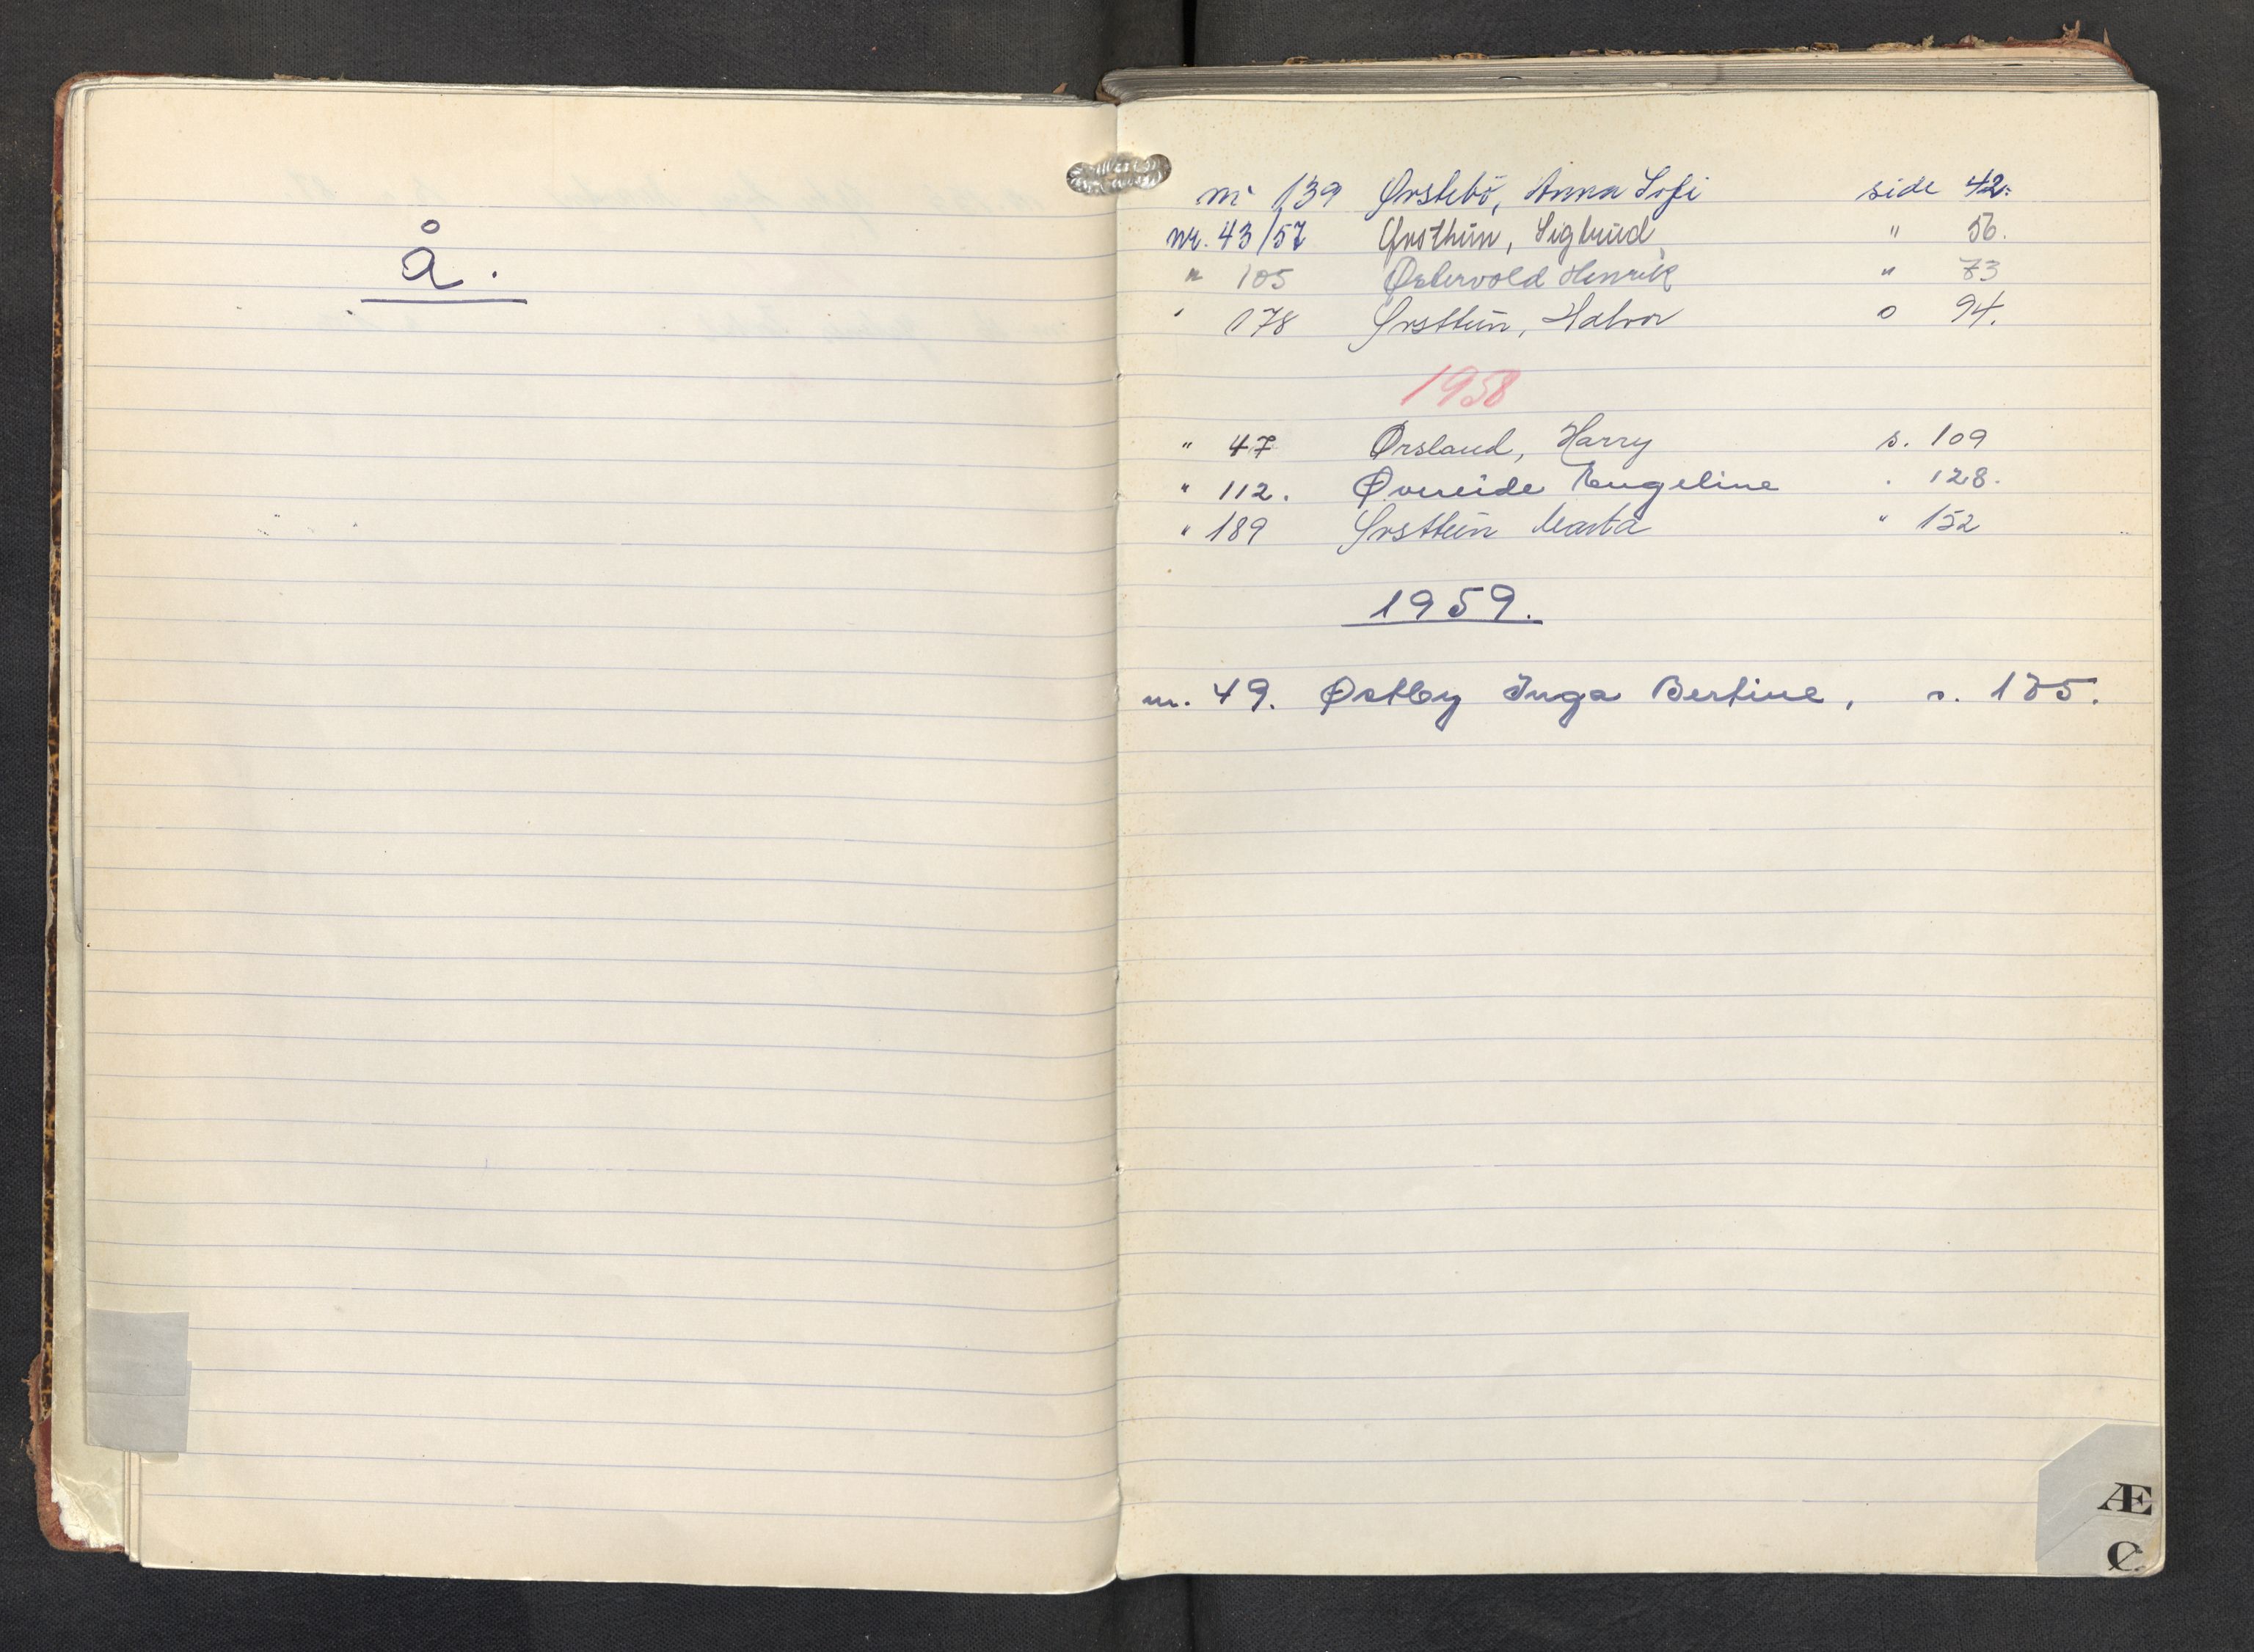 Å.
nr 139 Ørstebö, Anna Sofi side 42.
nr. 43/57 Ørsthun, Sigbrud " 56.
" 105 Østervold Henrik " 73
" 178 Ørsttun, Halvor " 94.
1958
" 47 Ørsland, Harry s. 109
" 112. Øvreeide Engeline " 128.
" 189 Ørsttun Marta " 152
1959.
nr. 49. Østby Inga Bertine, s. 185.
Æ
Ø